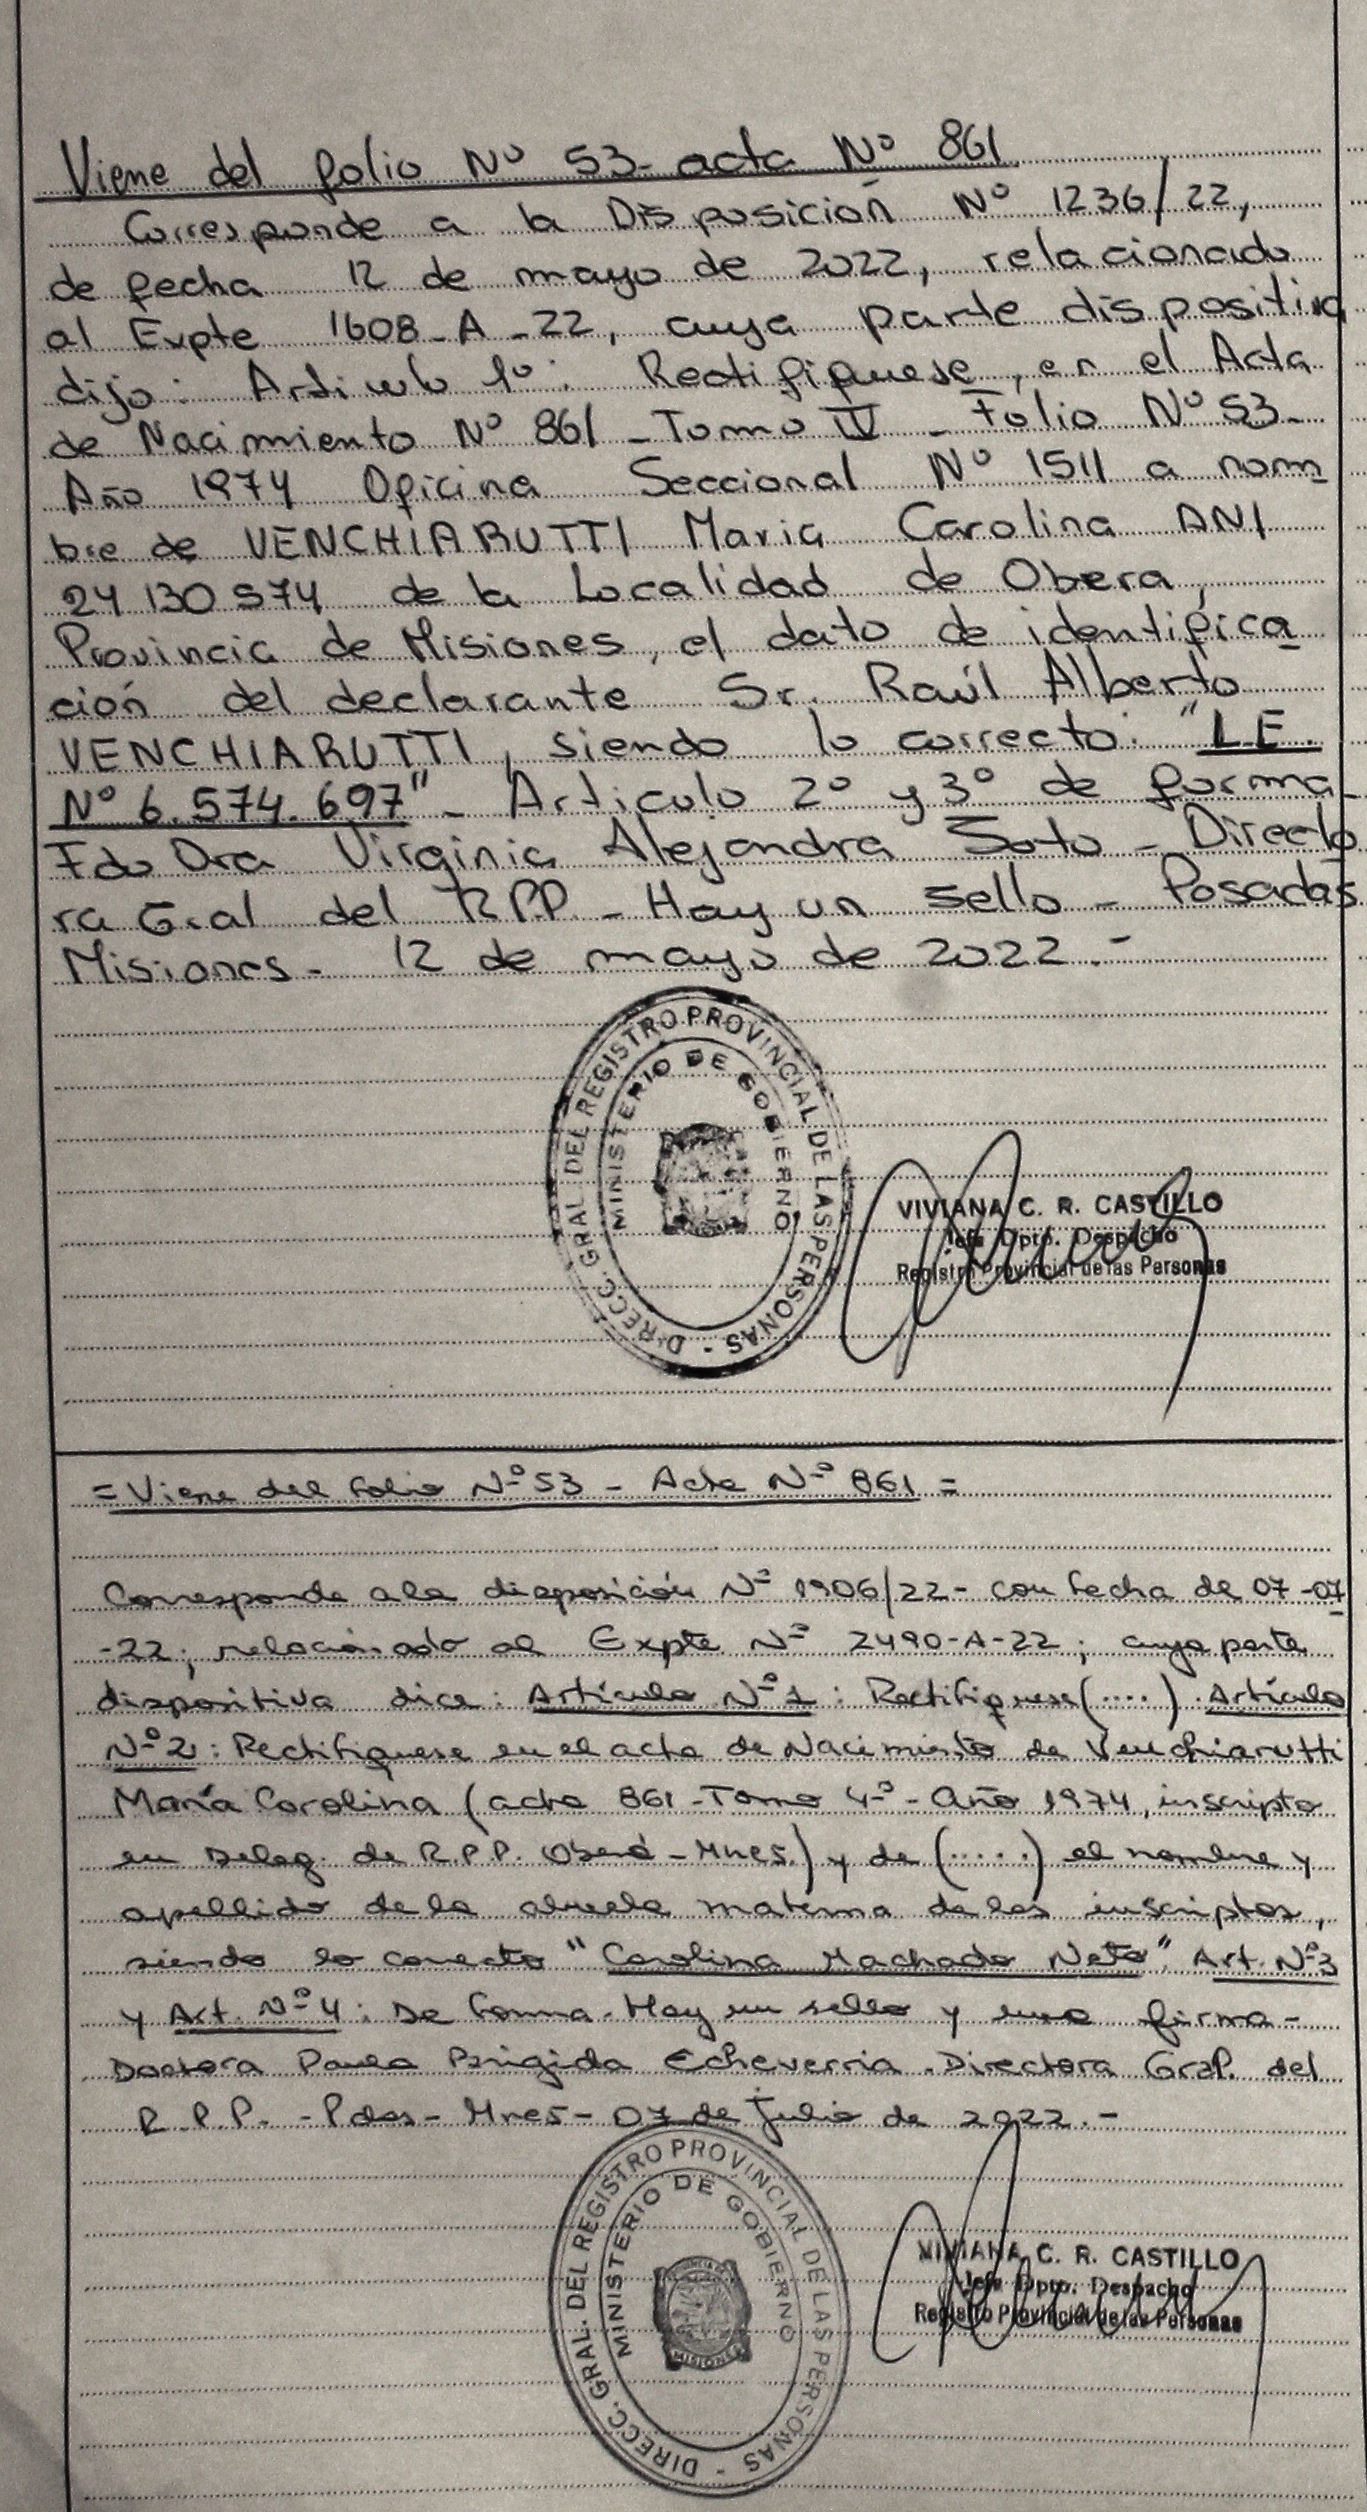 Viene del folio Nº 53 - acta Nº 861
Corresponde a la Disposición Nº 1236/22,
de fecha 12 de mayo de 2022, relacionado
al Expte 1608-A-22, cuya parte dispositiva
dijo: Articulo 1º: Rectifíquese, en el Acta
de Nacimiento Nº 861 - Tomo IV - Folio Nº 53 -
Año 1974 Oficina Seccional Nº 1511 a nom
bre de VENCHIARUTTI Maria Carolina DNI
24 130 574 de la Localidad de Obera,
Provincia de Misiones, el dato de identifica
ción del declarante Sr. Raúl Alberto
VENCHIARUTTI, siendo lo correcto: "L.E.
Nº 6.574.697" - Articulo 2º y 3º de forma -
Fdo Dra Virginia Alejandra Soto - Directo
ra Gral del R.P.P. - Hay un sello - Posadas
Misiones - 12 de mayo de 2022.-
DIRECC. GRAL. DEL REGISTRO PROVINCIAL DE LAS PERSONAS -
MINISTERIO DE GOBIERNO
VIVIANA C. R. CASTILLO
Jefa Dpto. Despacho
Registro Provincial de las Personas
= Viene del folio Nº 53 - Acta Nº 861 =
Corresponde a la disposición Nº 1906/22 - con fecha de 07-07
-22; relacionado al Expte Nº 2490-A-22; cuya parte
dispositiva dice: Artículo Nº 1: Rectifíquese (....). Artículo
Nº 2: Rectifíquese en el acta de Nacimiento de Venchiarutti
María Carolina (acta 861 - Tomo 4º - Año 1974, inscripto
en Deleg. de R.P.P. Oberá - Mnes.) y de (.....) el nombre y
apellido de la abuela materna de los inscriptos,
siendo lo correcto "Carolina Machado Neto". Art. Nº 3
y Art. Nº 4: De forma. Hay un sello y una firma -
Doctora Paula Brigida Echeverria. Directora Gral. del
R.P.P. - Pdas - Mnes - 07 de julio de 2022.-
DIRECC. GRAL. DEL REGISTRO PROVINCIAL DE LAS PERSONAS -
MINISTERIO DE GOBIERNO
MISIONES
VIVIANA C. R. CASTILLO
Jefa Dpto. Despacho
Registro Provincial de las Personas